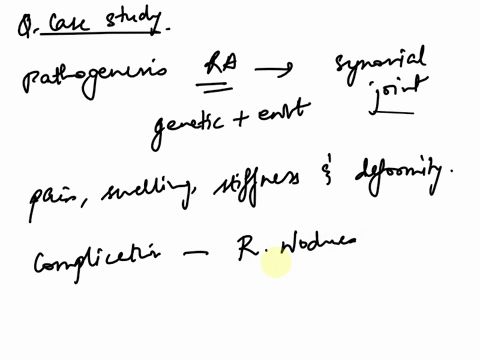 Q. Case study.
pathogenesis RA → synovial joint
genetic + envt
pain, swelling, stiffness & deformity.
Complication — R. Nodules